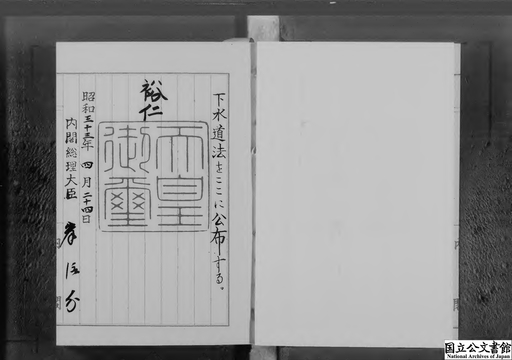 下水道法をここに公布する。
裕仁
天皇
御璽
昭和三十三年四月二十四日
内閣総理大臣
内
閣
国立公文書館
National Archives of Japan